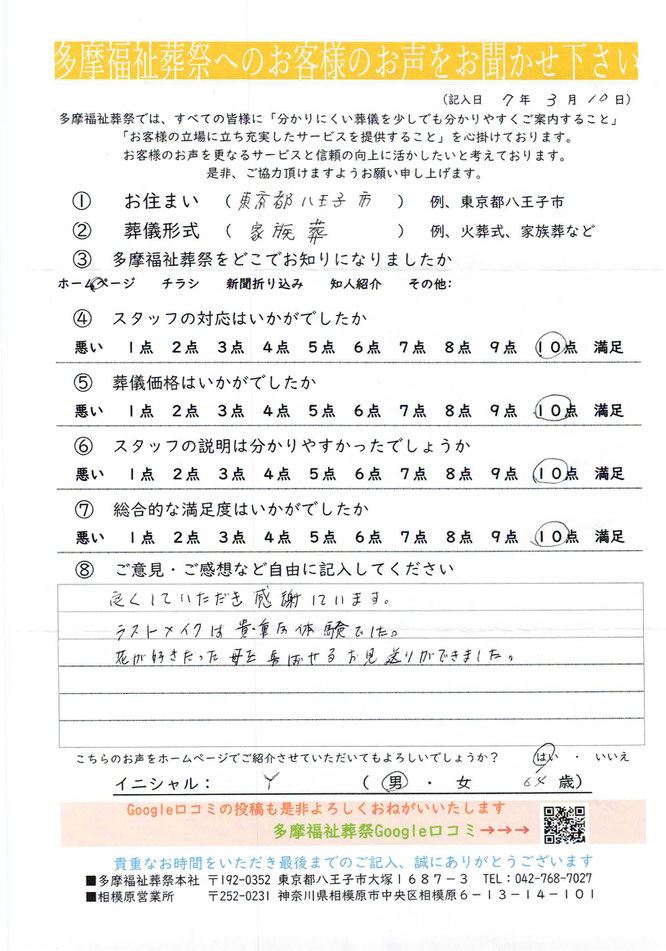 多摩福祉葬祭へのお客様のお声をお聞かせ下さい
(記入日 7 年 3 月 10 日)
多摩福祉葬祭では、すべての皆様に「分かりにくい葬儀を少しでも分かりやすくご案内すること」
「お客様の立場に立ち充実したサービスを提供すること」を心掛けております。
お客様のお声を更なるサービスと信頼の向上に活かしたいと考えております。
是非、ご協力頂けますようお願い申し上げます。
① お住まい （東京都八王子市） 例、東京都八王子市
② 葬儀形式 （家族葬） 例、火葬式、家族葬など
③ 多摩福祉葬祭をどこでお知りになりましたか
ホームページ チラシ 新聞折り込み 知人紹介 その他:
④ スタッフの対応はいかがでしたか
悪い 1点 2点 3点 4点 5点 6点 7点 8点 9点 10点 満足
⑤ 葬儀価格はいかがでしたか
悪い 1点 2点 3点 4点 5点 6点 7点 8点 9点 10点 満足
⑥ スタッフの説明は分かりやすかったでしょうか
悪い 1点 2点 3点 4点 5点 6点 7点 8点 9点 10点 満足
⑦ 総合的な満足度はいかがでしたか
悪い 1点 2点 3点 4点 5点 6点 7点 8点 9点 10点 満足
⑧ ご意見・ご感想など自由に記入してください
良くしていただき感謝しています。
ラストメイクは貴重な体験でした。
花が好きだった母を喜ばせるお見送りができました。
こちらのお声をホームページでご紹介させていただいてもよろしいでしょうか？ はい ・ いいえ
イニシャル： Y （ 男 ・ 女 64 歳）
Google口コミの投稿も是非よろしくおねがいいたします
多摩福祉葬祭Google口コミ→→→
貴重なお時間をいただき最後までのご記入、誠にありがとうございます
■多摩福祉葬祭本社 〒192-0352 東京都八王子市大塚１６８７－３ TEL：042-768-7027
■相模原営業所 〒252-0231 神奈川県相模原市中央区相模原６－１３－１４－１０１